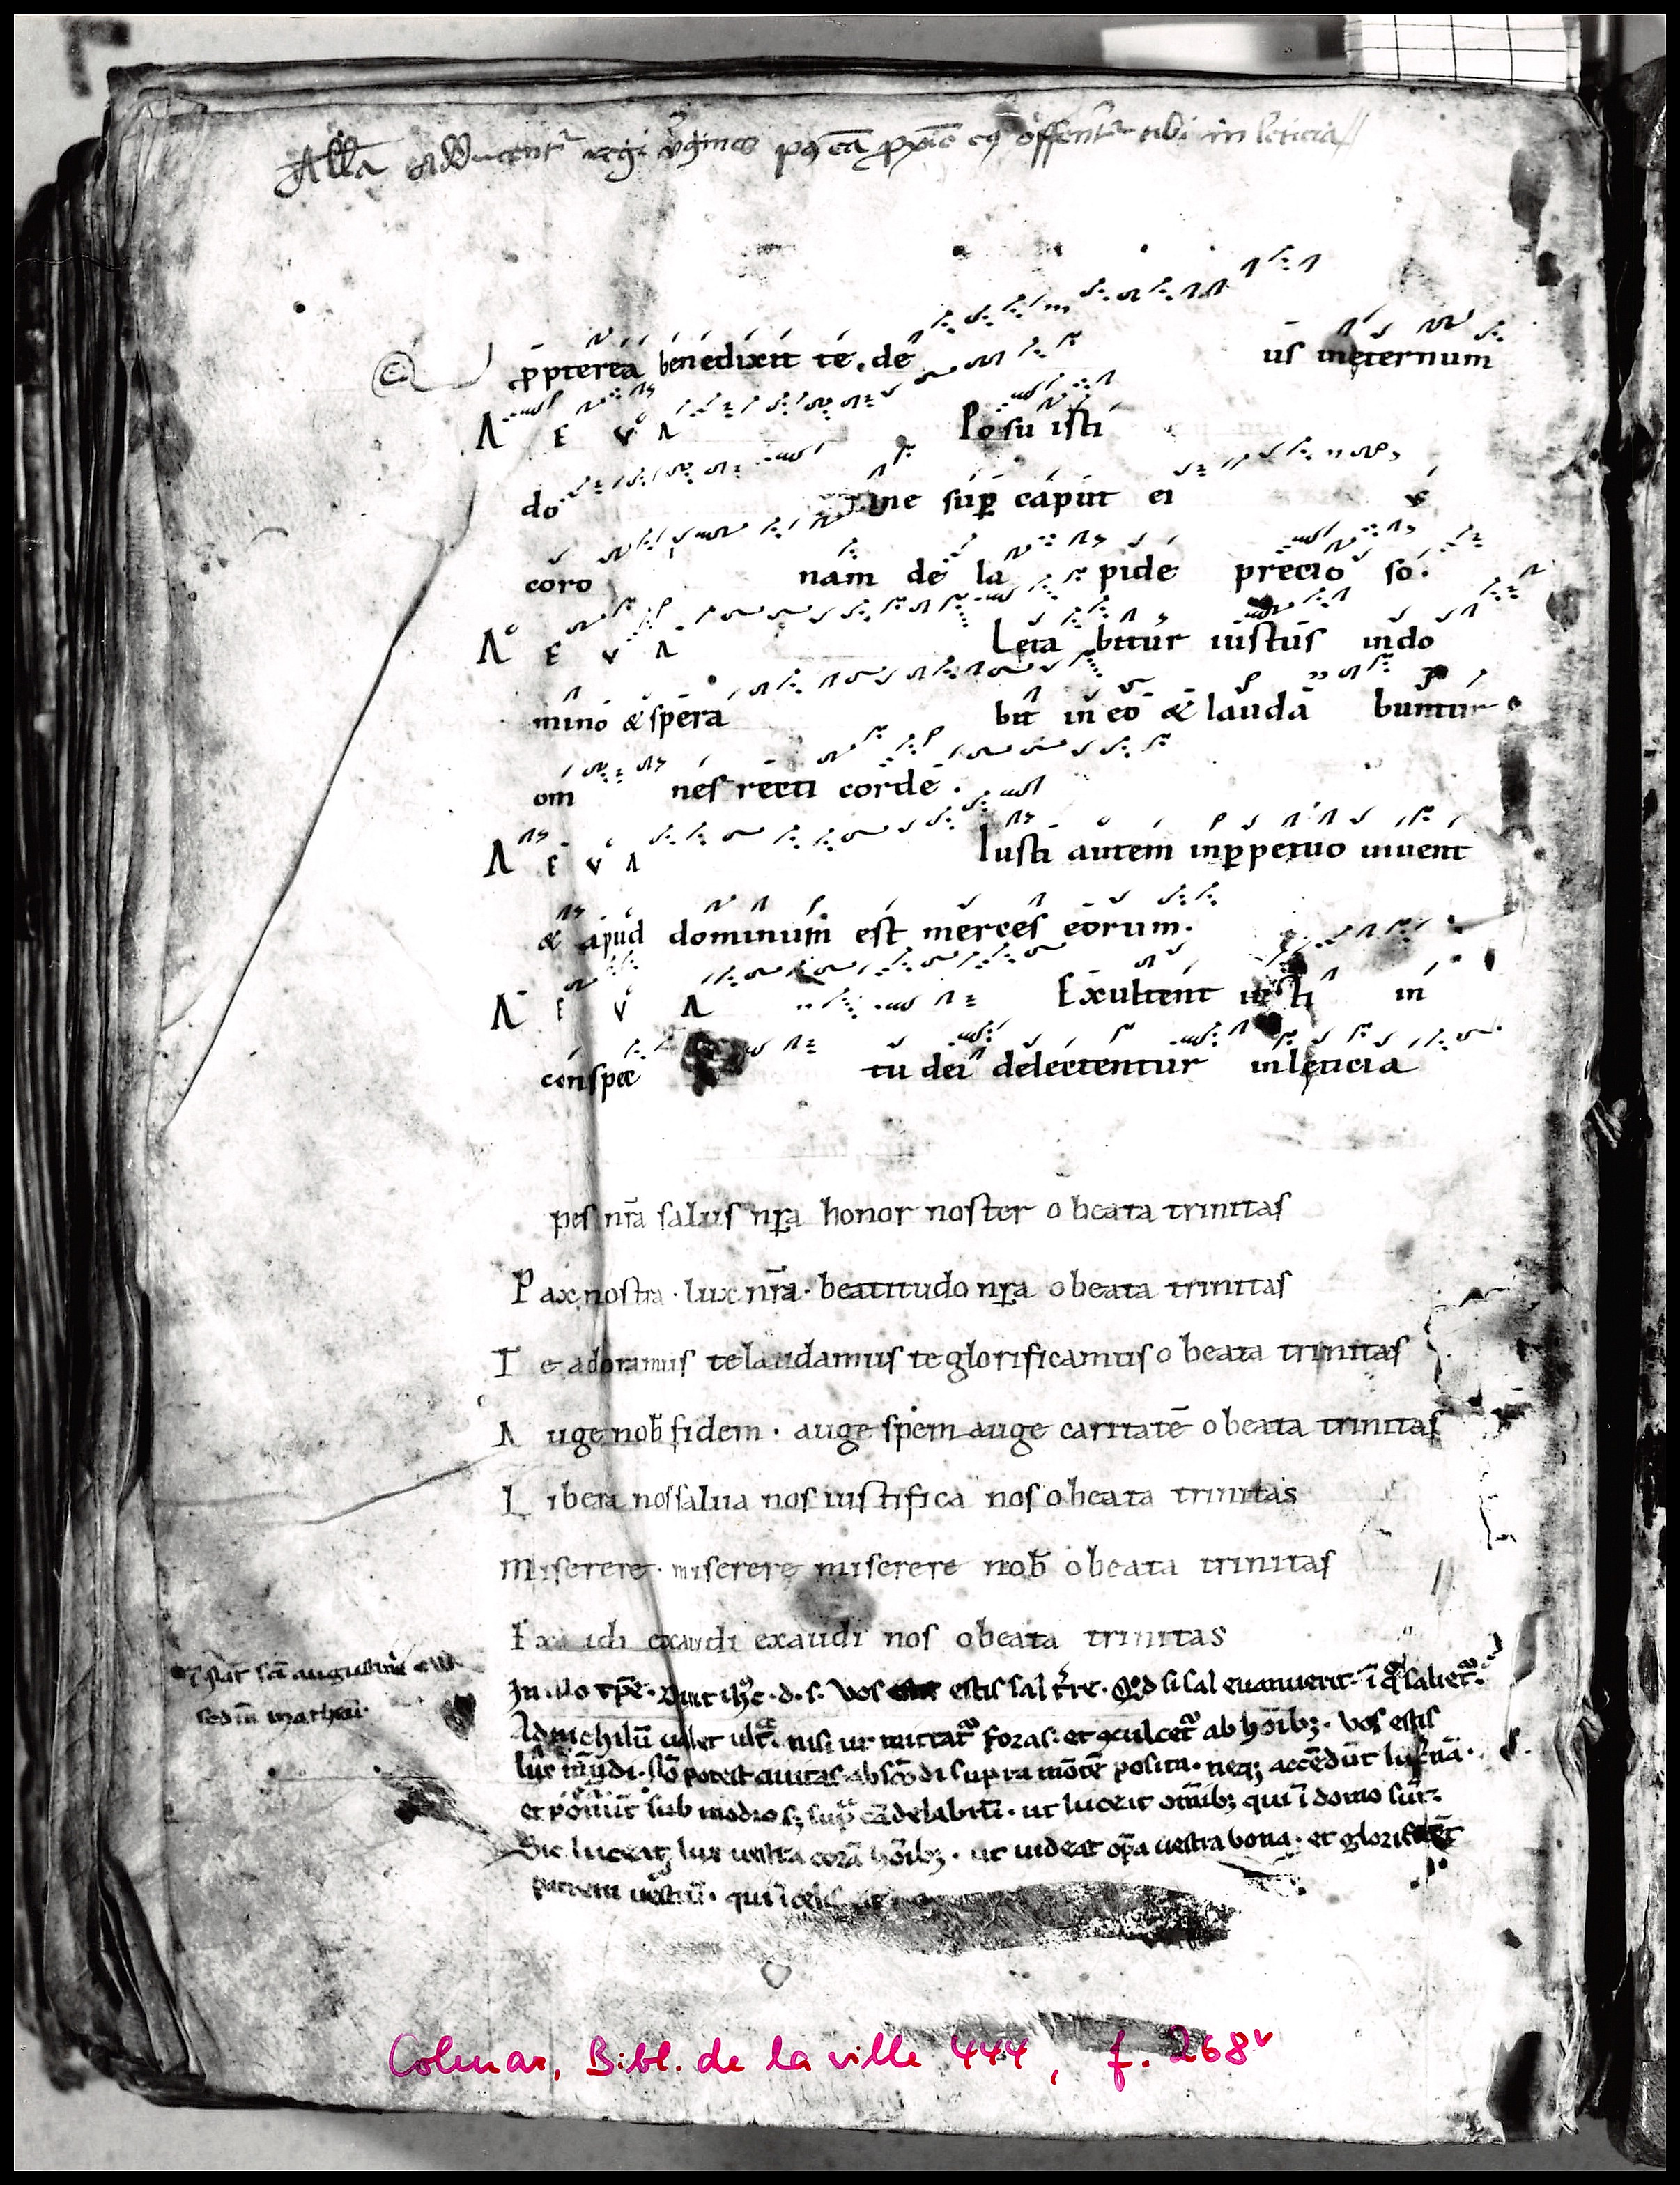 Alla adducentr regi vgines pꝯ eā ꝓxīe eꝯ offentr tibi in leticia
ꝓpterea benedixit te de us ineternum
A E V A Posu isti
do mine sup̄ caput ei v
coro nam de la pide precio so.
A E V A Leta bitur iustus indo
mino & spera bit in eo & lauda buntur
om nes recti corde.
A E V A Iusti autem inꝑpetuo uiuent
& apud dominum est merces eorum.
A E V A Exultent iusti in
conspec tu dei delectentur inleticia
pes nr̄a salus nr̄a honor noster o beata trinitas
Pax nostra · lux nr̄a · beatitudo nr̄a o beata trinitas
Te adoramus te laudamus te glorificamus o beata trinitas
Auge nob̄ fidem · auge spem auge caritatē o beata trinitas
Libera nos salua nos iustifica nos o beata trinitas
Miserere · miserere miserere nob̄ o beata trinitas
Exaudi exaudi exaudi nos o beata trinitas
augustini
sedm̄ matheū
In illo tp̄e · Dixit ih̄c · d · s · Vos estis sal t̄re · Qd si sal euanuerit · ī q̊ saliet᷑ ·
Ad nichilū ualet ult᷑ · nisi ut mittat᷑ foras · et ꝯculcet᷑ ab hōibꝫ · Vos estis
lux mūdi · Nō potest ciuitas abscōdi supra mōtē posita · neqꝫ accēdūt lucernā ·
et ponūt sub modio sꝫ sup̄ cādelabrū · ut luceat om̄ibꝫ qui ī domo sūt ·
Sic luceat lux uestra corā hōibꝫ · ut uideāt oꝑa uestra bona · et glorificēt
patrem uestrū · qui ī celis
Colmar, Bibl. de la ville 444, f. 268v